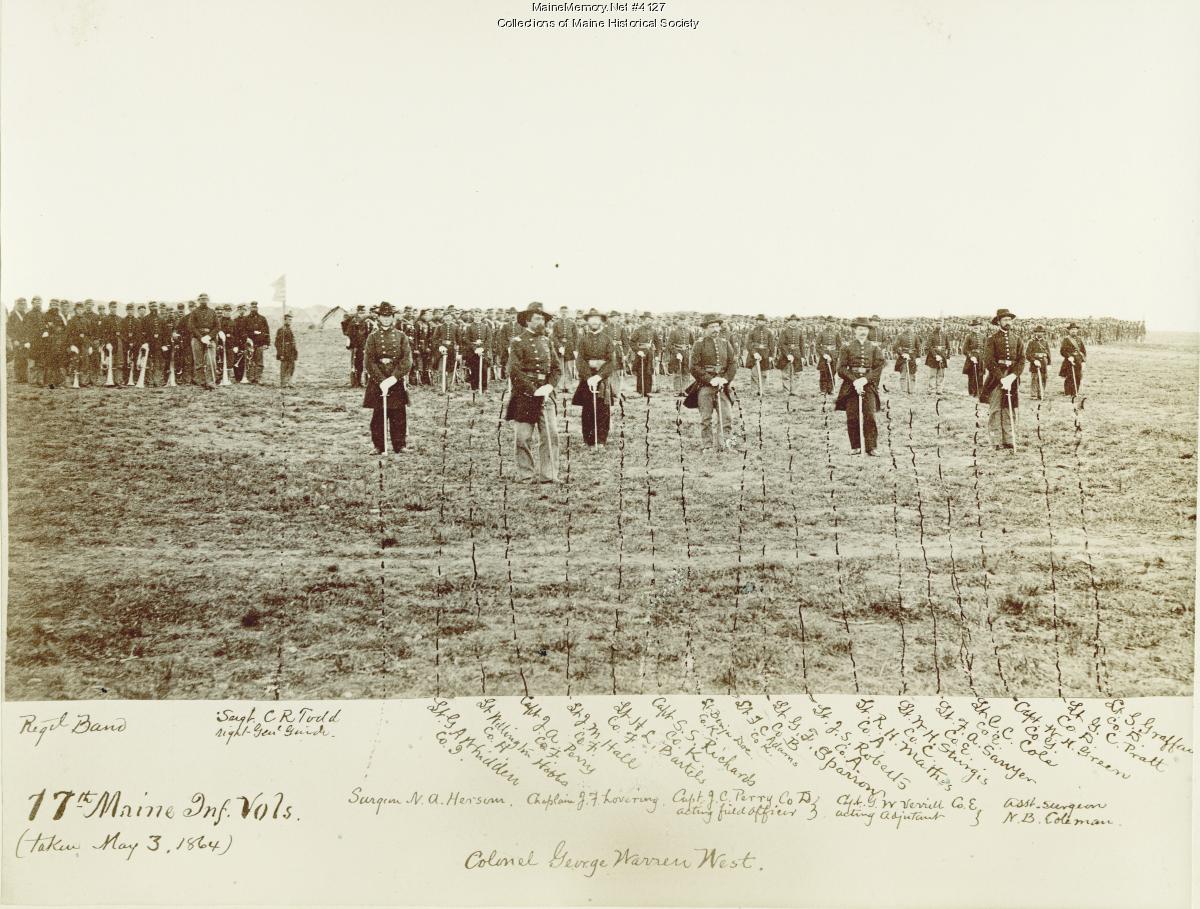 MaineMemory.Net #4127
Collections of Maine Historical Society
Reg'l Band
Sergt. C R Todd
right Gen'l Guide.
Lt. G. A. Whidden
Co. G.
Lt. Wellington Hobbs
Co. H
Capt. J. A. Perry
Co. F.
Lt. J. M. Hall
Co. H
Lt. H. L. Bartels
Co. F.
Capt. S. S. Richards
Co. K
Co. K
Lt. F. C. Adams
Co. B
Lt. G. F. Sparrow
Co. A
Lt. J. S. Roberts
Co. A.
Lt. R. H. Mathes
Co. C
Lt. W. H. Sturgis
Co. E.
Lt. F. A. Sawyer
Co. E.
Lt. C. C. Cole
Capt. W. H. Green
Co. G.
Lt. G. C. Pratt
Co. D.
Lt. S. Graffam
Co. B.
17th Maine Inf. Vols.
(taken May 3, 1864)
Surgeon N. A. Hersom.
Chaplain J. F. Lovering
Capt. J. C. Perry Co D
acting field officer
Capt. G. W Verrill Co. E
acting Adjutant
Asst. Surgeon
N. B. Coleman.
Colonel George Warren West.